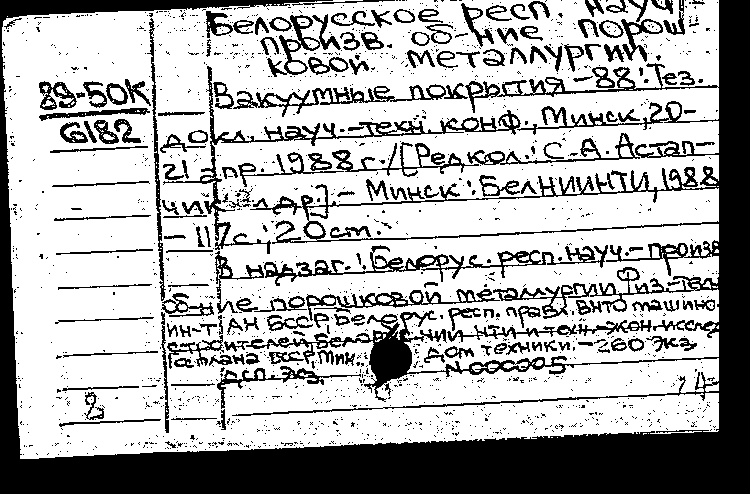 Белорусское респ. науч-
произв. об-ние порош-
ковой металлургии.
89-50К
Вакуумные покрытия -88: Тез.
6182
докл. науч.-техн. конф., Минск, 20-
21 апр. 1988 г. / [Редкол.: С.А. Астап-
чик и др.]. - Минск: БелНИИНТИ, 1988
- 117 с.; 20 см.
В надзаг.: Белорус. респ. науч.-произв
об-ние порошковой металлургии, Физ.-техн
ин-т АН БССР, Белорус. респ. правл. ВНТО машино-
строителей, Белорус. НИИ НТИ и техн.-экон. исслед
Госплана БССР, Мин. дом техники. - 260 экз.
ДСП. Экз. N000005